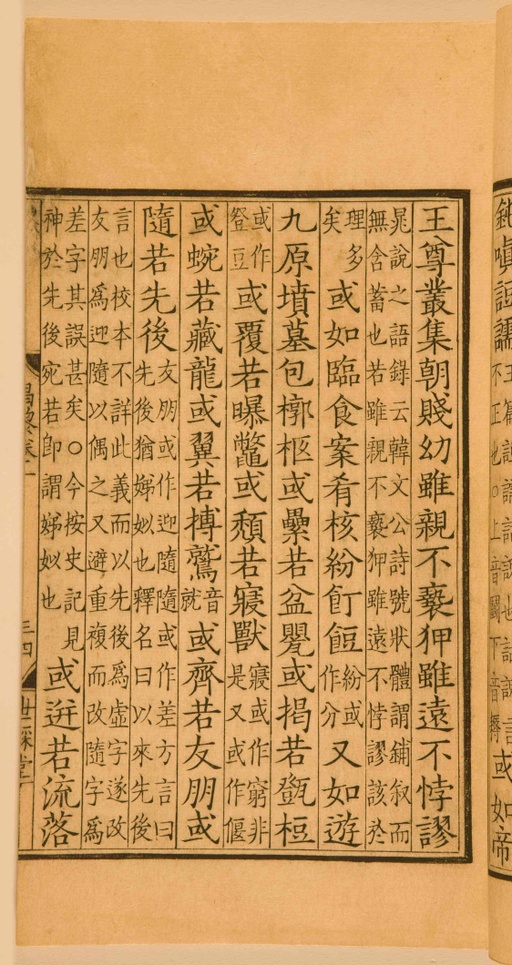 或如帝
王尊叢集朝賤幼雖親不褻狎雖遠不悖謬
晁說之語錄云韓文公詩號狀體謂鋪叙而
無含蓄也若雖親不褻狎雖遠不悖謬該於
理多矣或如臨食案肴核紛飣餖紛或作分又如遊
九原墳墓包槨柩或纍若盆甖或揭若㽅梪
或作登豆或覆若曝鼈或頽若寢獸寢或作窮非是又或作偃
或蜿若藏龍或翼若搏鷲音就或齊若友朋或
隨若先後友朋或作迎隨隨或作差方言曰先後猶娣姒也釋名曰以來先後
言也校本不詳此義而以先後爲虛字遂改
友朋爲迎隨以偶之又避重複而改隨字爲
差字其誤甚矣○今按史記見神於先後宛若即謂娣姒也或逬若流落
三四
世綵堂